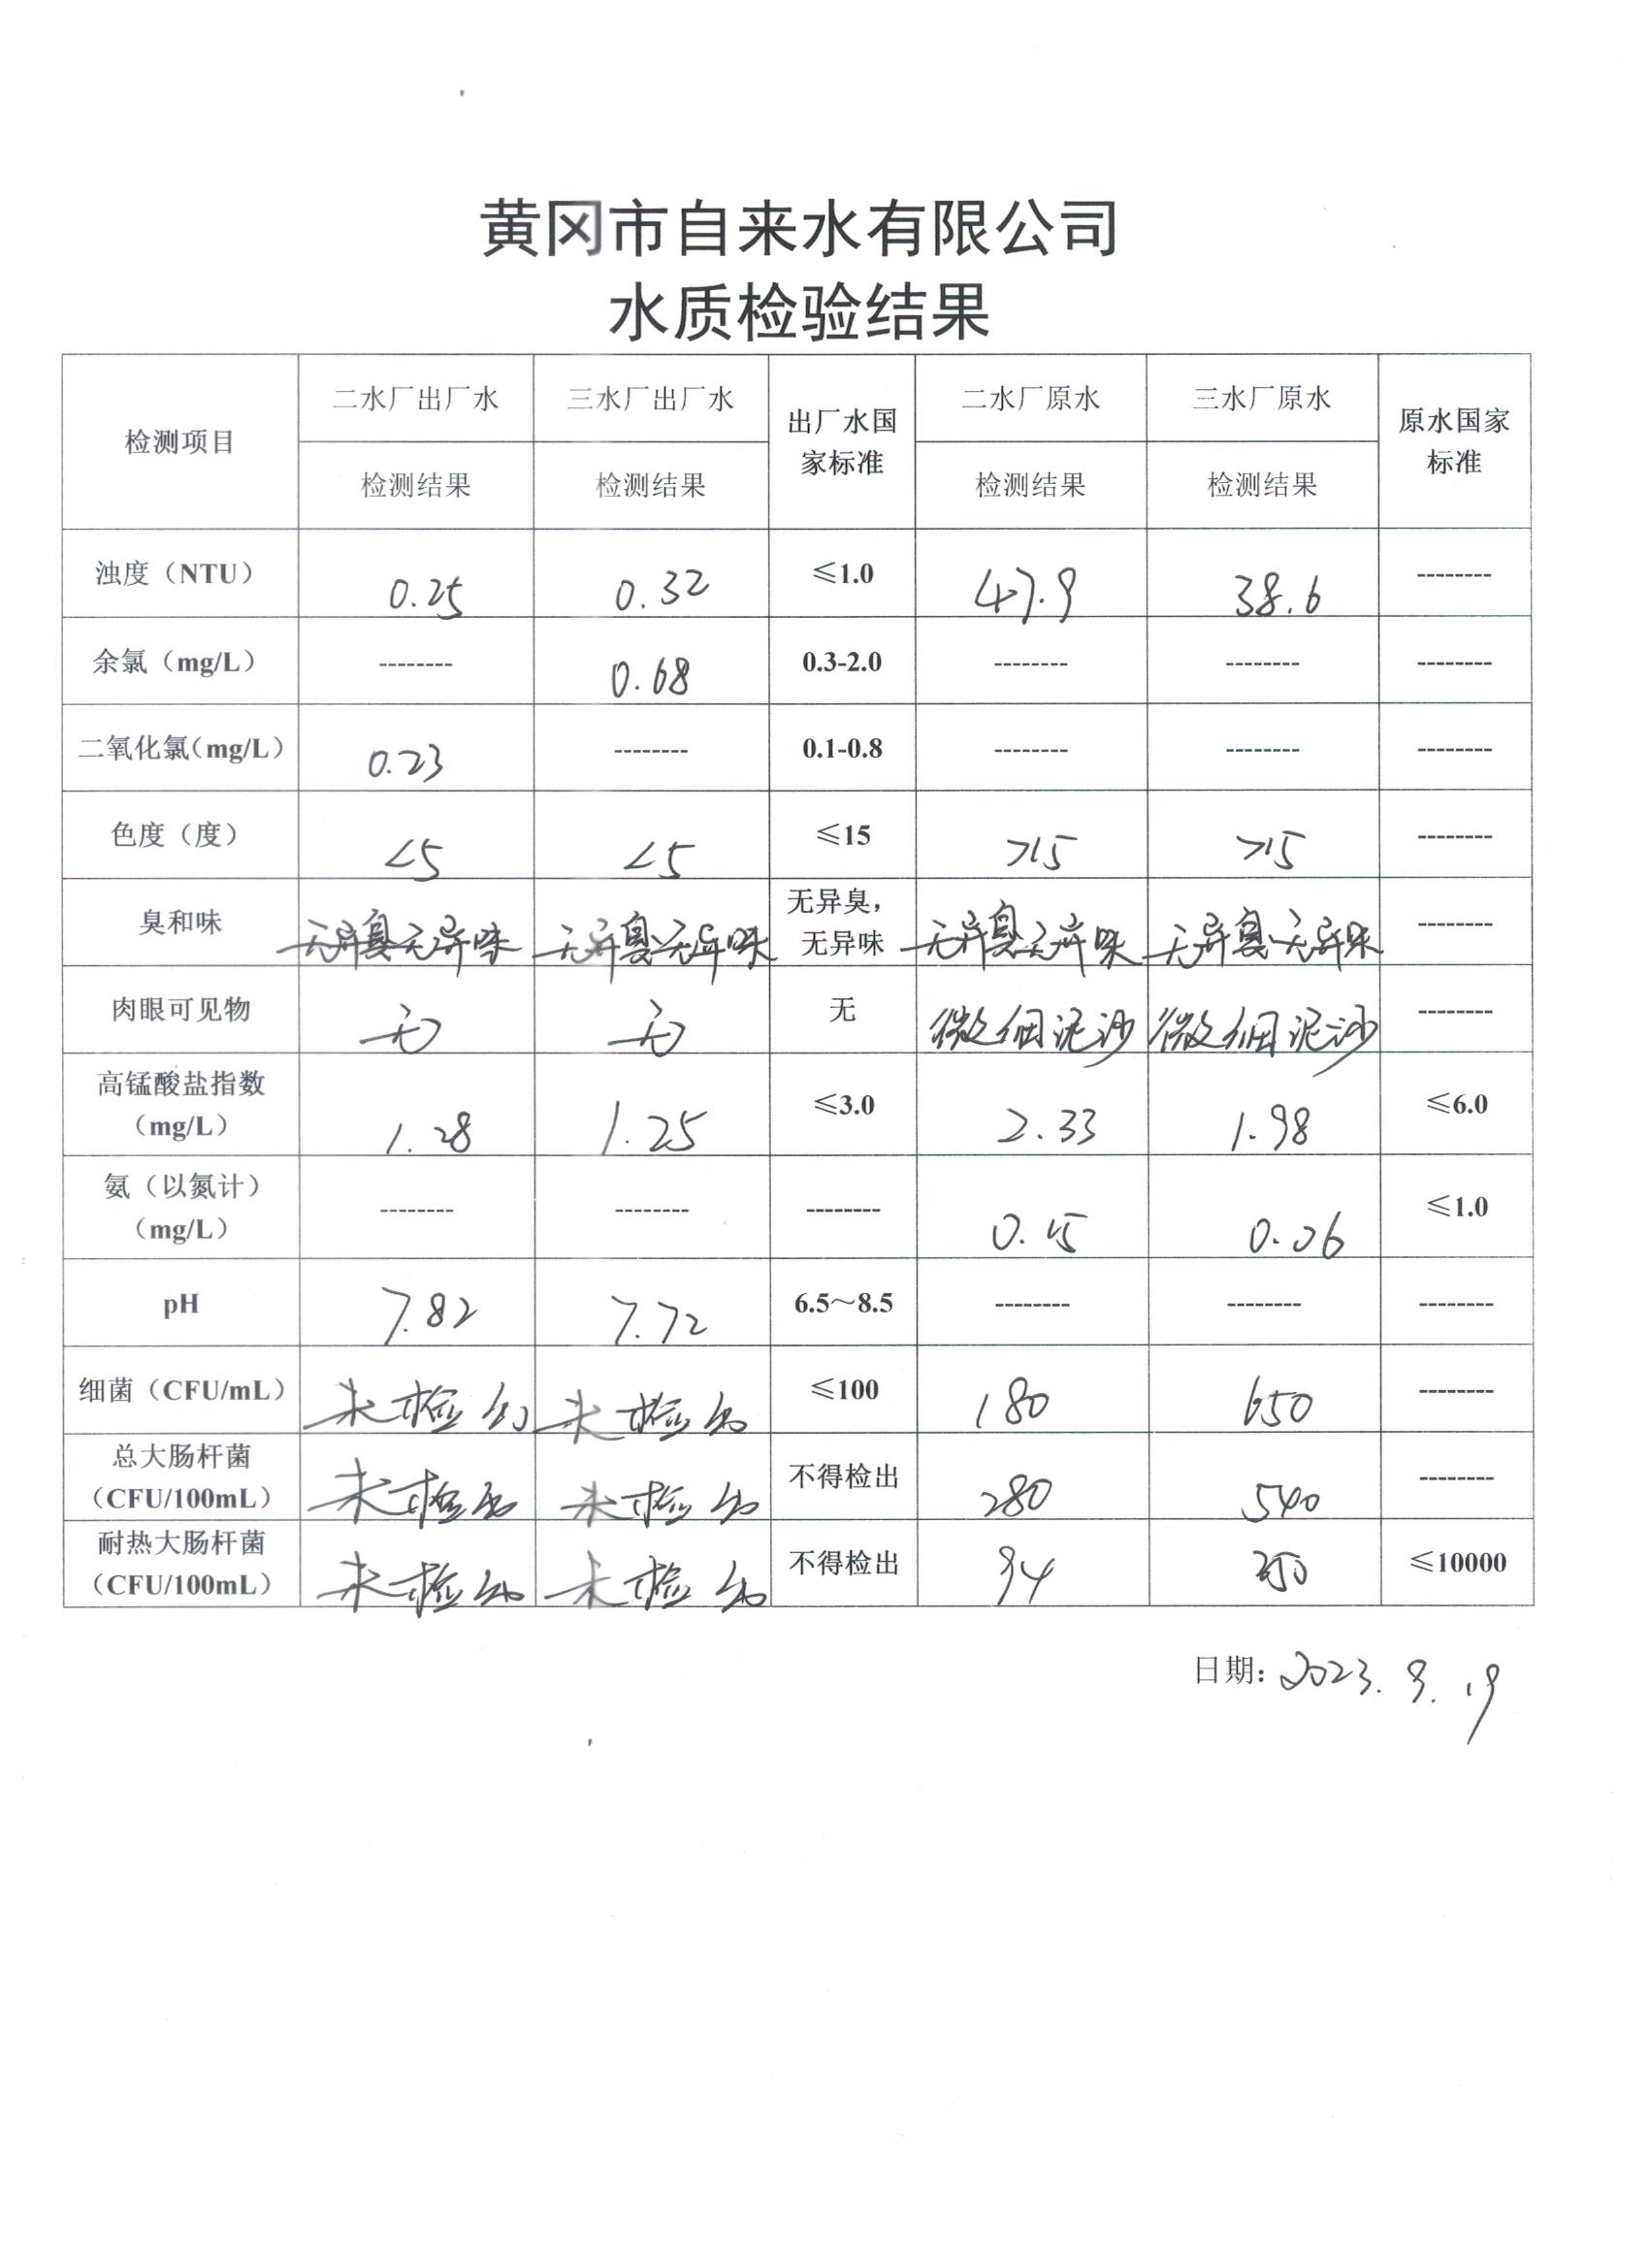 黄冈市自来水有限公司
水质检验结果
检测项目 二水厂出厂水 三水厂出厂水 出厂水国家标准 二水厂原水 三水厂原水 原水国家标准
检测结果 检测结果 检测结果 检测结果
浊度（NTU） 0.25 0.32 ≤1.0 47.9 38.6 --------
余氯（mg/L） -------- 0.68 0.3-2.0 -------- -------- --------
二氧化氯（mg/L） 0.23 -------- 0.1-0.8 -------- -------- --------
色度（度） <5 <5 ≤15 >15 >15 --------
臭和味 无异臭无异味 无异臭无异味 无异臭，无异味 无异臭无异味 无异臭无异味 --------
肉眼可见物 无 无 无 微细泥沙 微细泥沙 --------
高锰酸盐指数（mg/L） 1.28 1.25 ≤3.0 2.33 1.98 ≤6.0
氨（以氮计）（mg/L） -------- -------- -------- 0.15 0.06 ≤1.0
pH 7.82 7.72 6.5～8.5 -------- -------- --------
细菌（CFU/mL） 未检出 未检出 ≤100 180 650 --------
总大肠杆菌（CFU/100mL） 未检出 未检出 不得检出 280 540 --------
耐热大肠杆菌（CFU/100mL） 未检出 未检出 不得检出 94 ≤10000
日期: 2023. 9. 19